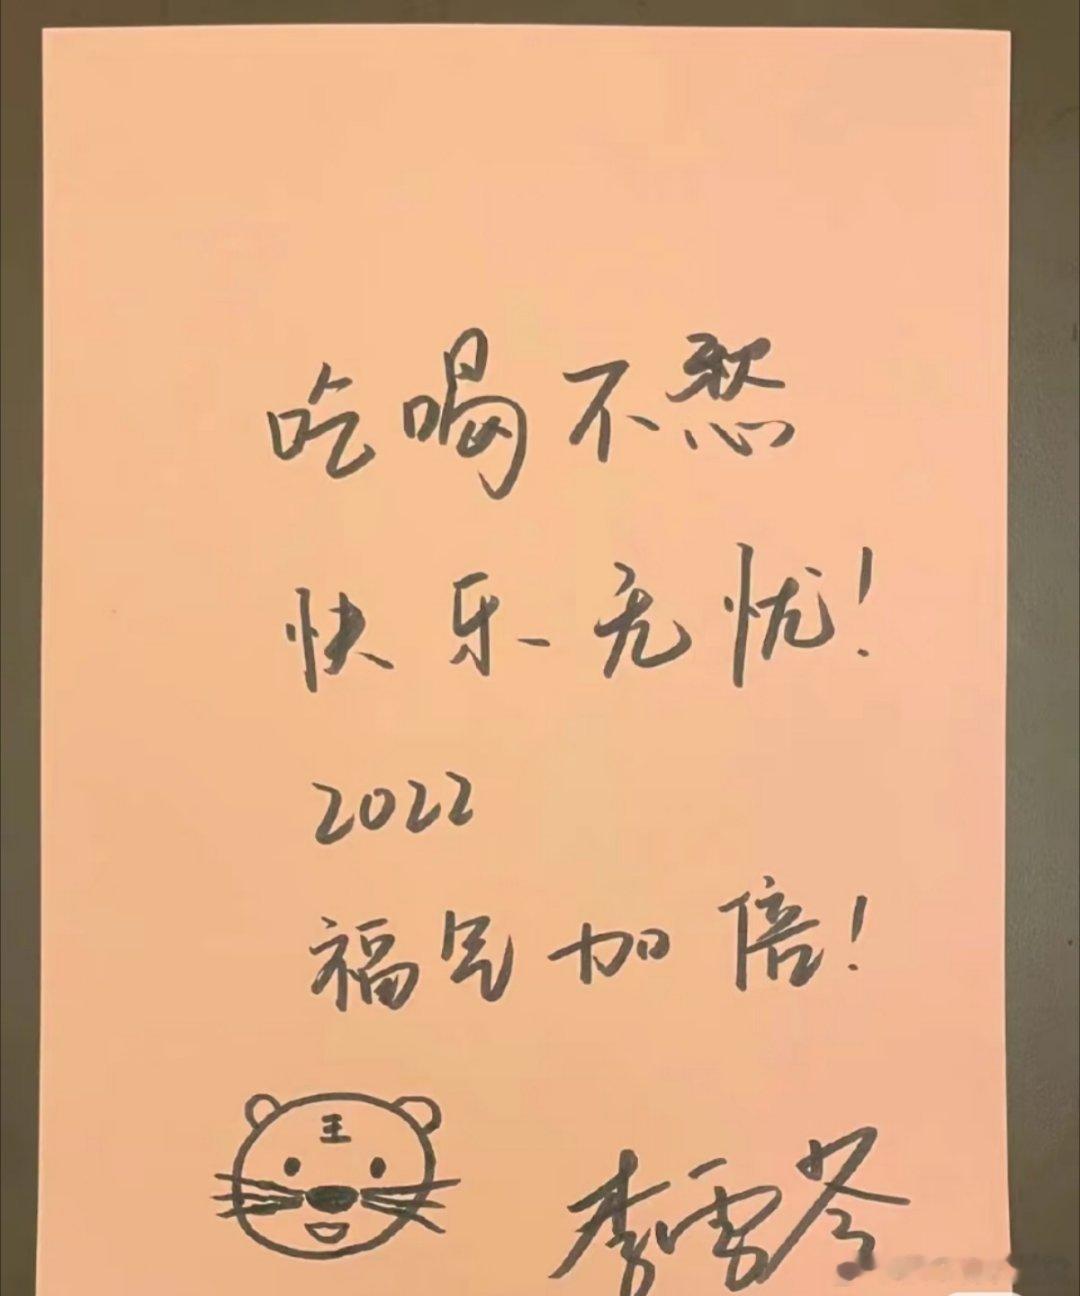 吃喝不愁
快乐无忧!
2022
福气加倍!
王
李雪琴